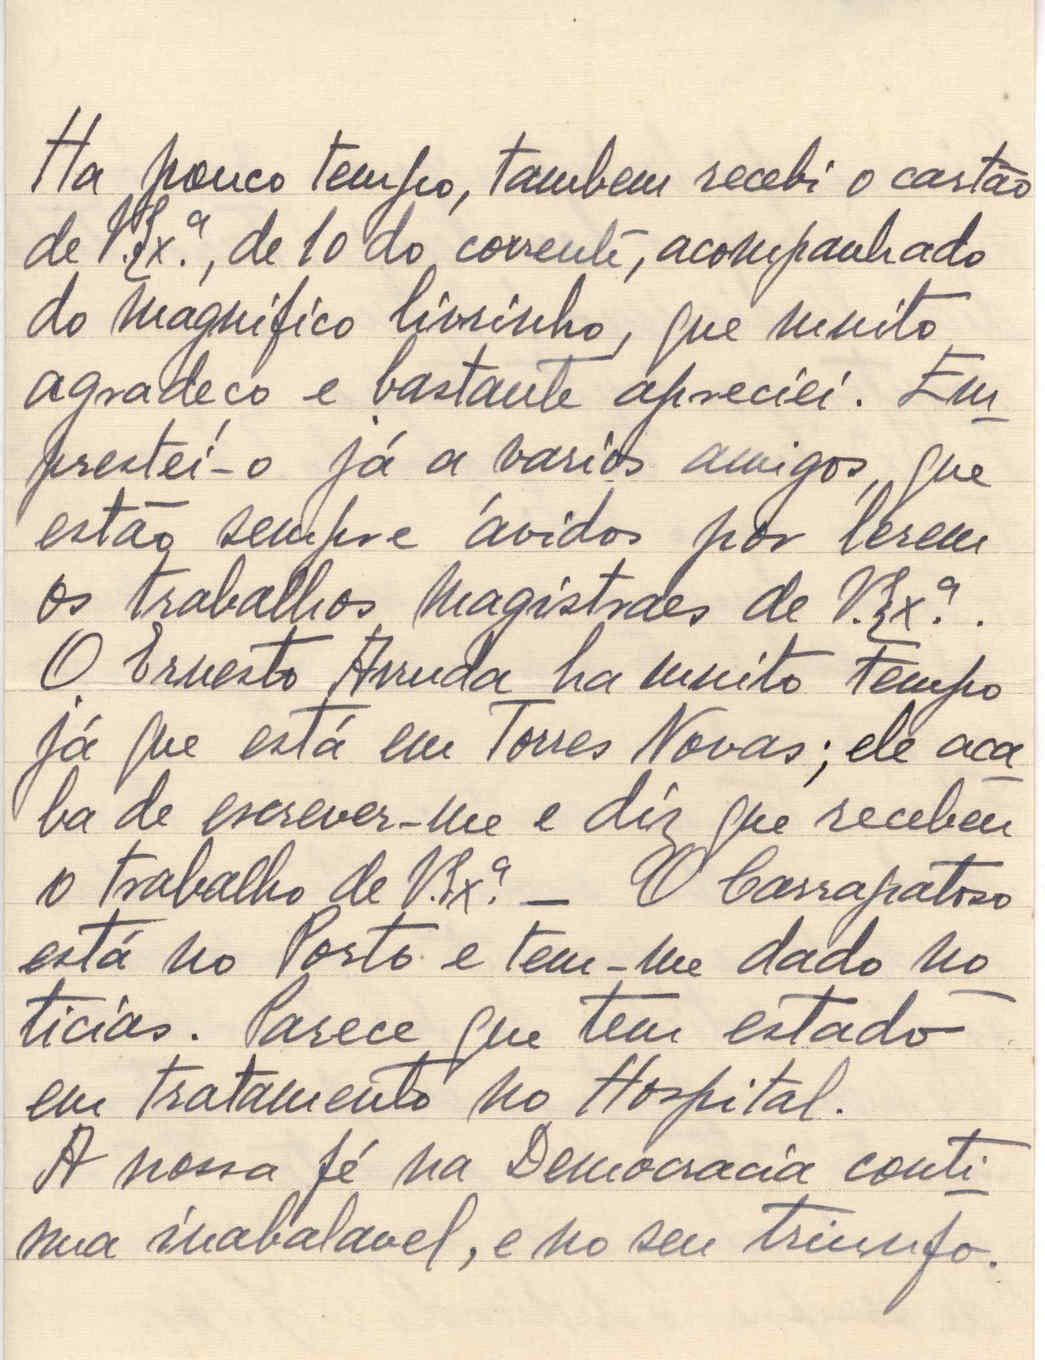 Ha pouco tempo, tambem recebi o cartão
de V.Exª., de 10 do corrente, acompanhado
do magnifico livrinho, que muito
agradeço e bastante apreciei. Em-
prestei-o já a varios amigos, que
estão sempre ávidos por lerem
os trabalhos magistraes de V.Exª..
O Ernesto Arruda ha muito tempo
já que está em Torres Novas; ele aca-
ba de escrever-me e diz que recebeu
o trabalho de V.Exª. — O Carrapatoso
está no Porto e tem-me dado no-
ticias. Parece que tem estado
em tratamento no Hospital.
A nossa fé na Democracia conti-
nua inabalavel, e no seu triunfo.